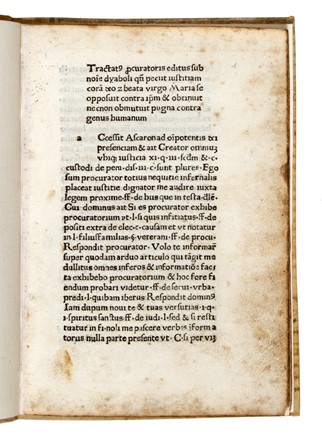 Tractatꝯ ꝓcuratoris editus sub
noīe dyaboli qn̄ pecut iustitiam
corā deo z beata virgo Maria se
opposuit contra ipm̄ & obtinuit
ne non obmutuit pugna contra
genus humanum
a Ccessit Ascaron ad oīpotentis
presenciam & ait Creator omniuꝫ
vbiqꝫ iusticia xi·q·iij· &
custodi de peri·dis·iij·c· sunt plures· Ego
sum procurator totius neqitie infernalis
placeat iustitie dignator me audire iuxta
legem proxime·ff·de his que in testa·
Cui dominus ait Si es procurator exhibe
procuratorium vt·l·si quis ·ff·de
positi extra de elec·c·causam et vt notatur
in·l·filiusfamilias·§·veterani·ff·de procu·
Respondit procurator· Volo te informar
super quodam arduo articulo qui tāgit me
dullitus omnes inferos & informatiōe facta
exhibebo procuratorium & hoc fore fi
endum probari videtur·ff·de serui·vrba·
predi·l·quibam Respondit dominꝯ
Iam dupum noui te & tuas versutias·i·q·i·
spiritus sanctus·ff·de iudi·l·sed & si resti
tuatur in fi·nolz me piscere verbis īform
torus nulla parte presente vt· C·si per vim